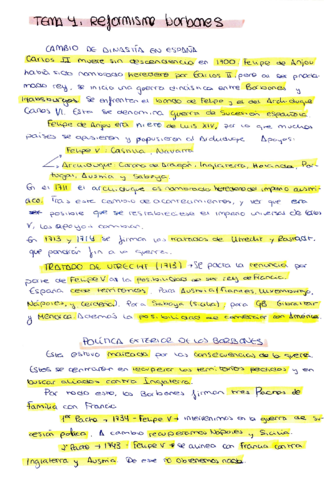 TEMA 4. Reformismo borbones
CAMBIO DE DINASTÍA EN ESPAÑA
Carlos II muere sin descendencia en 1700. Felipe de Anjou
había sido nombrado heredero por Carlos II, pero no se procla-
mado rey, se inicia una guerra dinástica entre Borbones y
Habsburgos. Se enfrentan el bando de Felipe y el del Archiduque
Carlos VI. Esto se denomina guerra de Sucesión española
Felipe de Anjou era nieto de Luis XIV, por lo que muchos
países se opusieron y pusieron al Archiduque. Apoyos:
Felipe V: Castilla, Navarra
Archiduque: Corona de Aragón, Inglaterra, Holanda, Por-
tugal, Austria y Saboya
En el 1711 el archiduque es nombrado heredero del imperio austri-
aco. Tras este cambio de acontecimientos, y ver que era
posible que se restableciese el imperio universal de Carlos
V, los apoyos cambian.
En 1713 y 1714 se firman los tratados de Utrecht y Rastatt,
que pondrán fin a la guerra.
TRATADO DE UTRECHT (1713) → Se pacta la renuncia por
parte de Felipe V de la posibilidad de ser rey de Francia.
España cede territorios. Para Austria (Flandes, Luxemburgo,
Nápoles, y Cerdeña). Para Saboya (Sicilia), para GB Gibraltar
y Menorca. Además la posibilidad de comerciar con América.
POLÍTICA EXTERIOR DE LOS BORBONES
Esta estuvo marcada por las consecuencias de la guerra.
Estos se centrarán en recuperar los territorios perdidos y en
buscar aliados contra Inglaterra.
Por todo esto, los Borbones firman tres Pactos de
Familia con Francia
1er Pacto → 1734 - Felipe V → intervenimos en la guerra de Su-
cesión polaca. A cambio recuperamos Nápoles y Sicilia.
2º Pacto → 1743 - Felipe V → se alinea con Francia contra
Inglaterra y Austria. De este no obtenemos nada.